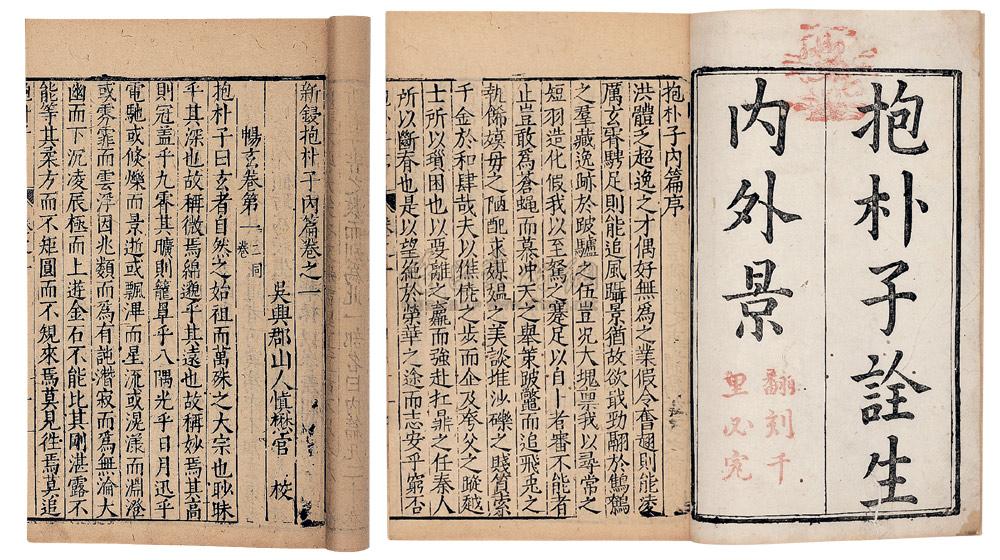 抱朴子詮生
内外景
翻刻千
里必究
抱朴子內篇序
洪體乏超逸之才偶好無為之業假令奮翅則能凌
厲玄霄騁足則能追風躡景猶故欲戢勁翮於鷦鷃
之羣藏逸跡於跛驢之伍豈況大塊禀我以尋常之
短羽造化假我以至駑之蹇足以自卜者審不能者
止豈敢為蒼蠅而慕冲天之舉策跛鼈而追飛兎之
執餙嫫母之陋配求媒媪之美談堆沙礫之賤質索
千金於和肆哉夫以僬僥之步而企及夸父之蹤越
士所以瑣困也以要離之羸而強赴扛鼎之任秦人
所以斷脊也是以望絕於榮華之途而志安乎窮否
新鋟抱朴子內篇卷之一
吳興郡山人慎懋官 校
暢玄卷第一
抱朴子曰玄者自然之始祖而萬殊之大宗也眇昧
乎其深也故稱微焉綿邈乎其遠也故稱妙焉其高
則冠盖乎九霄其曠則籠罩乎八隅光乎日月迅乎
電馳或倏爍而景逝或飄滭而星流或滉漾而淵澄
或雰霏而雲浮因兆類而為有託潛寂而為無淪大
幽而下沉凌辰極而上遊金石不能比其剛湛露不
能等其柔方而不矩圓而不規來焉莫見往焉莫追